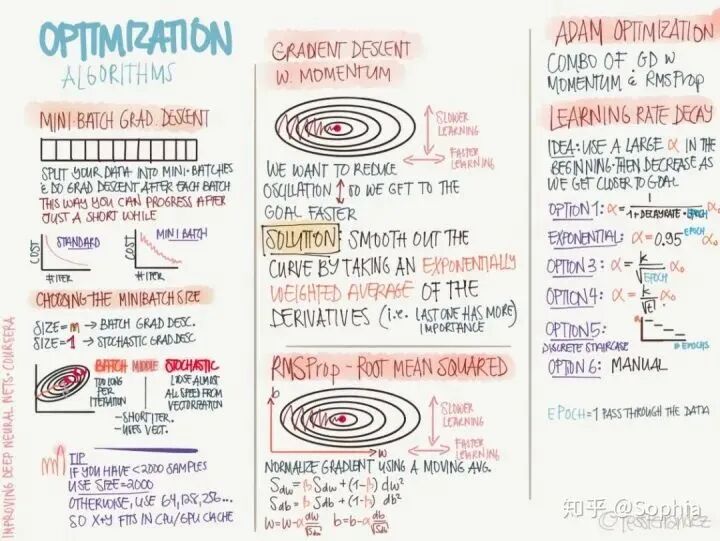 OPTIMIZATION
ALGORITHMS
MINI-BATCH GRAD. DESCENT
SPLIT YOUR DATA INTO MINI-BATCHES
& DO GRAD DESCENT AFTER EACH BATCH
THIS WAY YOU CAN PROGRESS AFTER
JUST A SHORT WHILE
COST
STANDARD
# ITER
COST
MINI BATCH
# ITER
CHOOSING THE MINIBATCH SIZE
SIZE=m → BATCH GRAD DESC.
SIZE=1 → STOCHASTIC GRAD DESC.
BATCH
TOO LONG
PER
ITERATION
MIDDLE
-SHORT ITER.
-USES VECT.
STOCHASTIC
LOOSE ALMOST
ALL SPEED FROM
VECTORIZATION
TIP
IF YOU HAVE <2000 SAMPLES
USE SIZE=2000
OTHERWISE, USE 64,128,256...
SO X+Y FITS IN CPU/GPU CACHE
IMPROVING DEEP NEURAL NETS · COURSERA
GRADIENT DESCENT
W. MOMENTUM
SLOWER
LEARNING
FASTER
LEARNING
WE WANT TO REDUCE
OSCILLATION ↕ SO WE GET TO THE
GOAL FASTER
SOLUTION: SMOOTH OUT THE
CURVE BY TAKING AN EXPONENTIALLY
WEIGHTED AVERAGE OF THE
DERIVATIVES (i.e. LAST ONE HAS MORE)
IMPORTANCE
RMSProp - ROOT MEAN SQUARED
b
w
SLOWER
LEARNING
FASTER
LEARNING
NORMALIZE GRADIENT USING A MOVING AVG.
Sdw = β Sdw + (1-β) dw²
Sdb = β Sdb + (1-β) db²
w = w - α dw/√Sdw b = b - α db/√Sdb
ADAM OPTIMIZATION
COMBO OF GD W
MOMENTUM & RMSProp
LEARNING RATE DECAY
IDEA: USE A LARGE α IN THE
BEGINNING. THEN DECREASE AS
WE GET CLOSER TO GOAL
OPTION 1: α = 1/(1+DECAYRATE·EPOCH) α₀
EXPONENTIAL: α = 0.95^EPOCH α₀
OPTION 3: α = k/√EPOCH α₀
OPTION 4: α = k/√t α₀
OPTION 5:
DISCRETE STAIRCASE
α
EPOCHS
OPTION 6: MANUAL
EPOCH = 1 PASS THROUGH THE DATA
知乎 @Sophia
@TessFerrandez